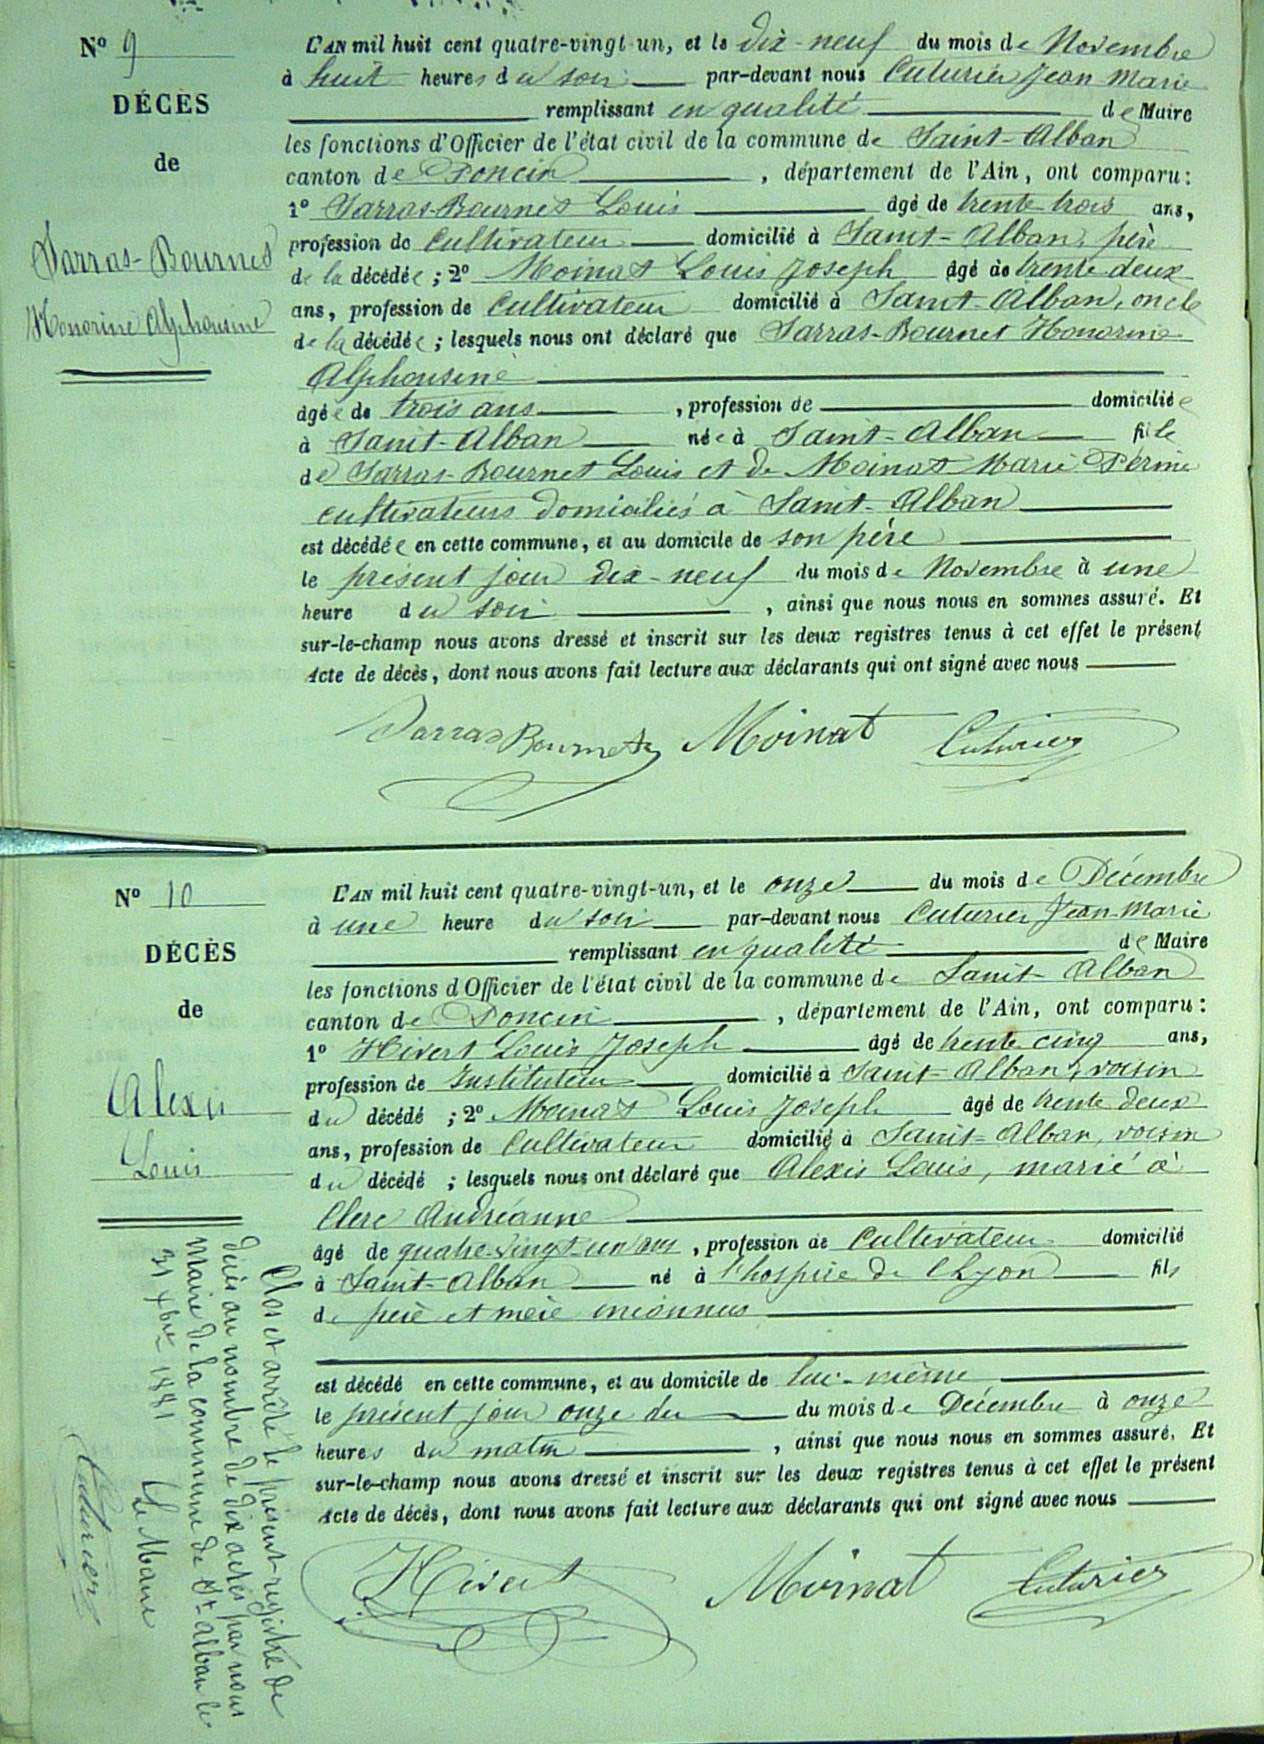 N° 9
DÉCÈS
de
Sarras-Bournet
Honorine Alphonsine
L'AN mil huit cent quatre-vingt-un, et le dix-neuf du mois de Novembre
à huit heures du soir par-devant nous Cuturier Jean Marie
remplissant en qualité de Maire
les fonctions d'Officier de l'état civil de la commune de Saint-Alban
canton de Poncin, département de l'Ain, ont comparu:
1° Sarras-Bournet Louis âgé de trente trois ans,
profession de Cultivateur domicilié à Saint-Alban, père
de la décédée; 2° Moinat Louis Joseph âgé de trente deux
ans, profession de Cultivateur domicilié à Saint-Alban, oncle
de la décédée; lesquels nous ont déclaré que Sarras-Bournet Honorine
Alphonsine
âgée de trois ans, profession de domiciliée
à Saint-Alban née à Saint-Alban fille
de Sarras-Bournet Louis et de Moinat Marie Périne
cultivateurs domiciliés à Saint-Alban
est décédée en cette commune, et au domicile de son père
le présent jour dix-neuf du mois de Novembre à une
heure du soir, ainsi que nous nous en sommes assuré. Et
sur-le-champ nous avons dressé et inscrit sur les deux registres tenus à cet effet le présent
Acte de décès, dont nous avons fait lecture aux déclarants qui ont signé avec nous
Sarras Bournet Moinat Cuturier
N° 10
DÉCÈS
de
Alexis
Louis
L'AN mil huit cent quatre-vingt-un, et le onze du mois de Décembre
à une heure du soir par-devant nous Cuturier Jean-Marie
remplissant en qualité de Maire
les fonctions d'Officier de l'état civil de la commune de Saint-Alban
canton de Poncin, département de l'Ain, ont comparu:
1° Hivert Louis Joseph âgé de trente cinq ans,
profession de Instituteur domicilié à Saint-Alban, voisin
du décédé; 2° Moinat Louis Joseph âgé de trente deux
ans, profession de Cultivateur domicilié à Saint-Alban, voisin
du décédé; lesquels nous ont déclaré que Alexis Louis, marié à
Clerc Andréanne
âgé de quatre-vingt-un ans, profession de Cultivateur domicilié
à Saint-Alban né à l'hospice de Lyon fils
de père et mère inconnus
est décédé en cette commune, et au domicile de lui-même
le présent jour onze du du mois de Décembre à onze
heures du matin, ainsi que nous nous en sommes assuré. Et
sur-le-champ nous avons dressé et inscrit sur les deux registres tenus à cet effet le présent
Acte de décès, dont nous avons fait lecture aux déclarants qui ont signé avec nous
Hivert Moinat Cuturier
Clos et arrêté le présent registre de
décès au nombre de dix actes par nous
Maire de la commune de St alban le
31 Xbre 1881
Le Maire
Cuturier